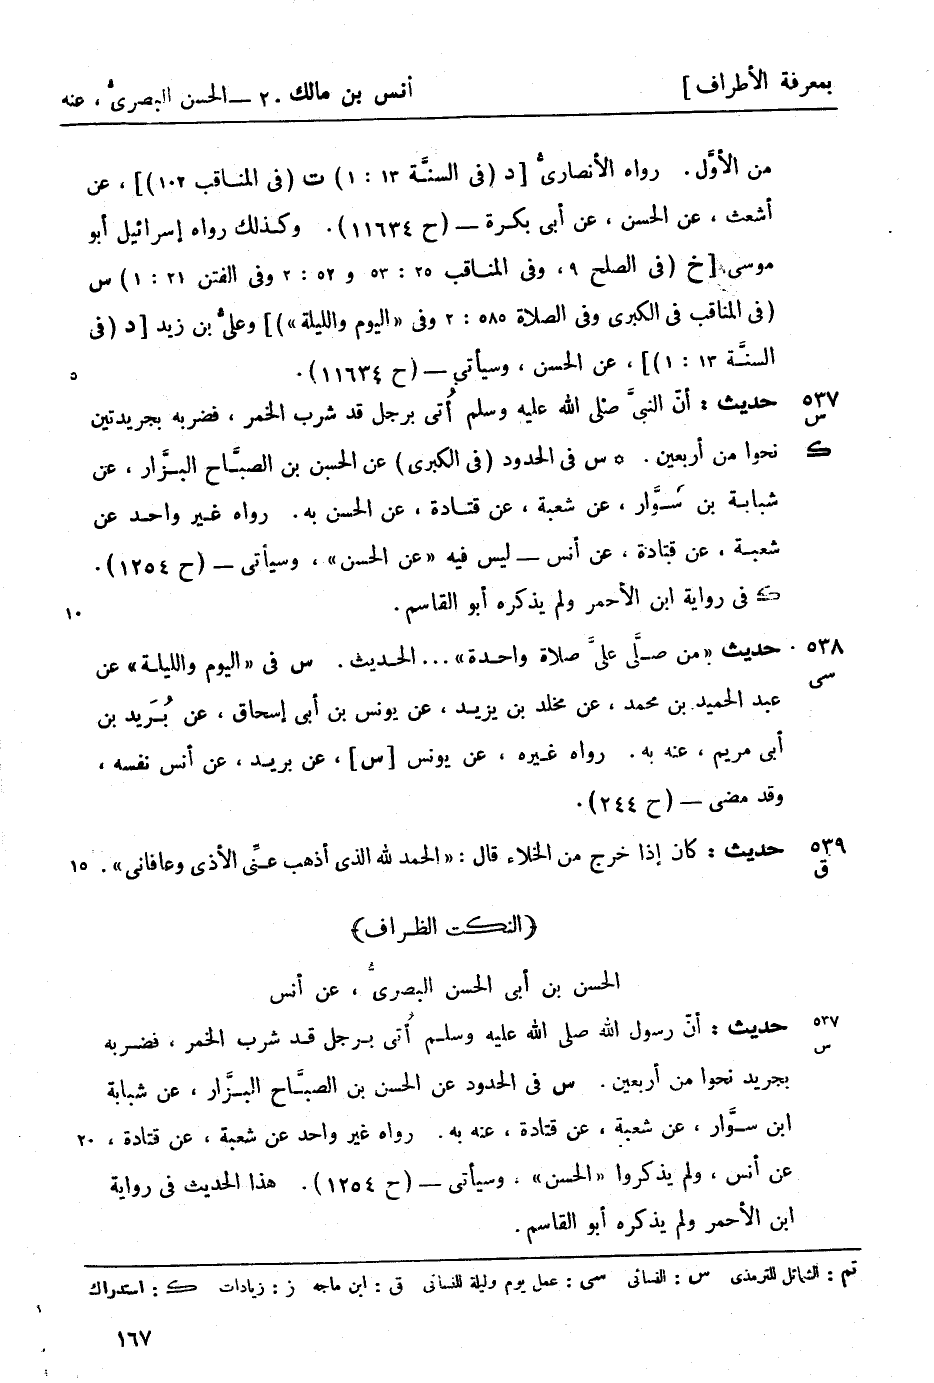 بمعرفة الأطراف] أنس بن مالك ٢٠ — الحسن البصرىُّ، عنه
من الأوَّل. رواه الأنصارىُّ [د (فى السنَّة ١٣ : ١) ت (فى المناقب ١٠٢)]، عن
أشعث، عن الحسن، عن أبى بكرة — (ح ١١٦٣٤). وكذلك رواه إسرائيل أبو
موسى [خ (فى الصلح ٩، وفى المناقب ٢٥ : ٥٣ و ٥٢ : ٢ وفى الفتن ٢١ : ١) س
(فى المناقب فى الكبرى وفى الصلاة ٥٨٥ : ٢ وفى «اليوم والليلة»)] وعلىُّ بن زيد [د (فى
السنَّة ١٣ : ١)]، عن الحسن، وسيأتى — (ح ١١٦٣٤). ٥
٥٣٧ حديث : أنّ النبىَّ صلى الله عليه وسلم أُتى برجل قد شرب الخمر، فضربه بجريدتين
س
ك نحوا من أربعين. * س فى الحدود (فى الكبرى) عن الحسن بن الصبَّاح البزَّار، عن
شبابة بن سَوَّار، عن شعبة، عن قتادة، عن الحسن به. رواه غير واحد عن
شعبة، عن قتادة، عن أنس — ليس فيه «عن الحسن»، وسيأتى — (ح ١٢٥٤).
ك فى رواية ابن الأحمر ولم يذكره أبو القاسم. ١٠
٥٣٨ حديث «من صلَّى علىَّ صلاة واحدة»... الحديث. س فى «اليوم والليلة» عن
سى
عبد الحميد بن محمد، عن مخلد بن يزيد، عن يونس بن أبى إسحاق، عن بُرَيد بن
أبى مريم، عنه به. رواه غيره، عن يونس [س]، عن بريد، عن أنس نفسه،
وقد مضى — (ح ٢٤٤).
٥٣٩ حديث : كان إذا خرج من الخلاء قال : «الحمد لله الذى أذهب عنِّى الأذى وعافانى». ١٥
ق
﴿النكت الظراف﴾
الحسن بن أبى الحسن البصرىُّ، عن أنس
٥٣٧ حديث : أنّ رسول الله صلى الله عليه وسلم أُتى برجل قد شرب الخمر، فضربه
س
بجريد نحوا من أربعين. س فى الحدود عن الحسن بن الصبَّاح البزَّار، عن شبابة
ابن سوَّار، عن شعبة، عن قتادة، عنه به. رواه غير واحد عن شعبة، عن قتادة، ٢٠
عن أنس، ولم يذكروا «الحسن»، وسيأتى — (ح ١٢٥٤). هذا الحديث فى رواية
ابن الأحمر ولم يذكره أبو القاسم.
تم : الشمائل للترمذى س : النسائى سى : عمل يوم وليلة للنسائى ق : ابن ماجه ز : زيادات ك : استدراك
١٦٧